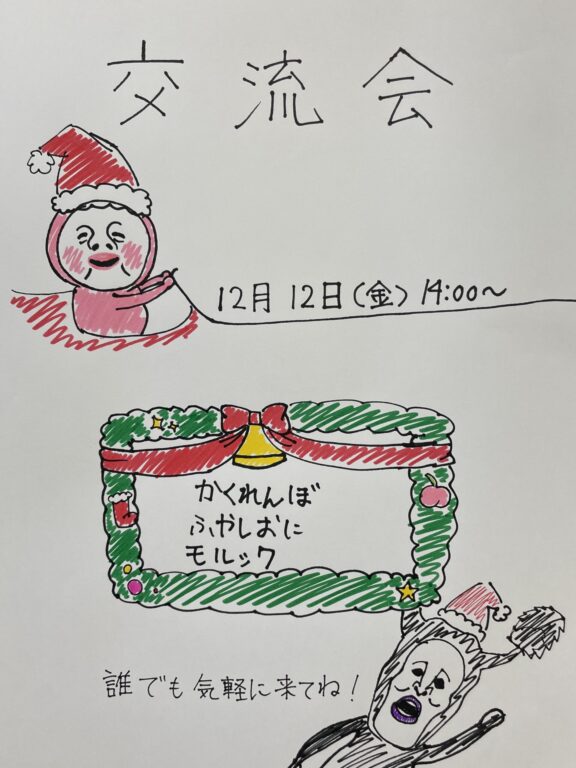 交流会
12月12日(金) 14:00〜
かくれんぼ
ふやしおに
モルック
誰でも気軽に来てね！